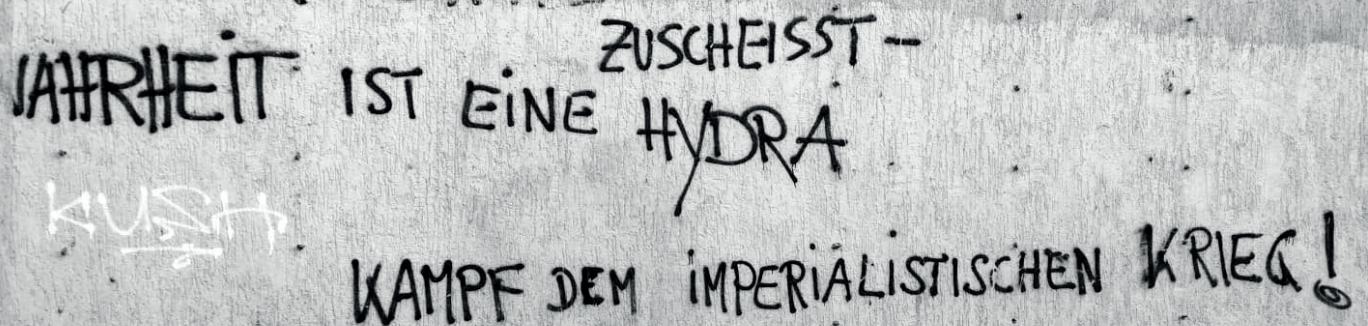 ZUSCHEISST-
WAHRHEIT IST EiNE HYDRA
KUSH
KAMPF DEM iMPERiALiSTiSCHEN KRIEG!